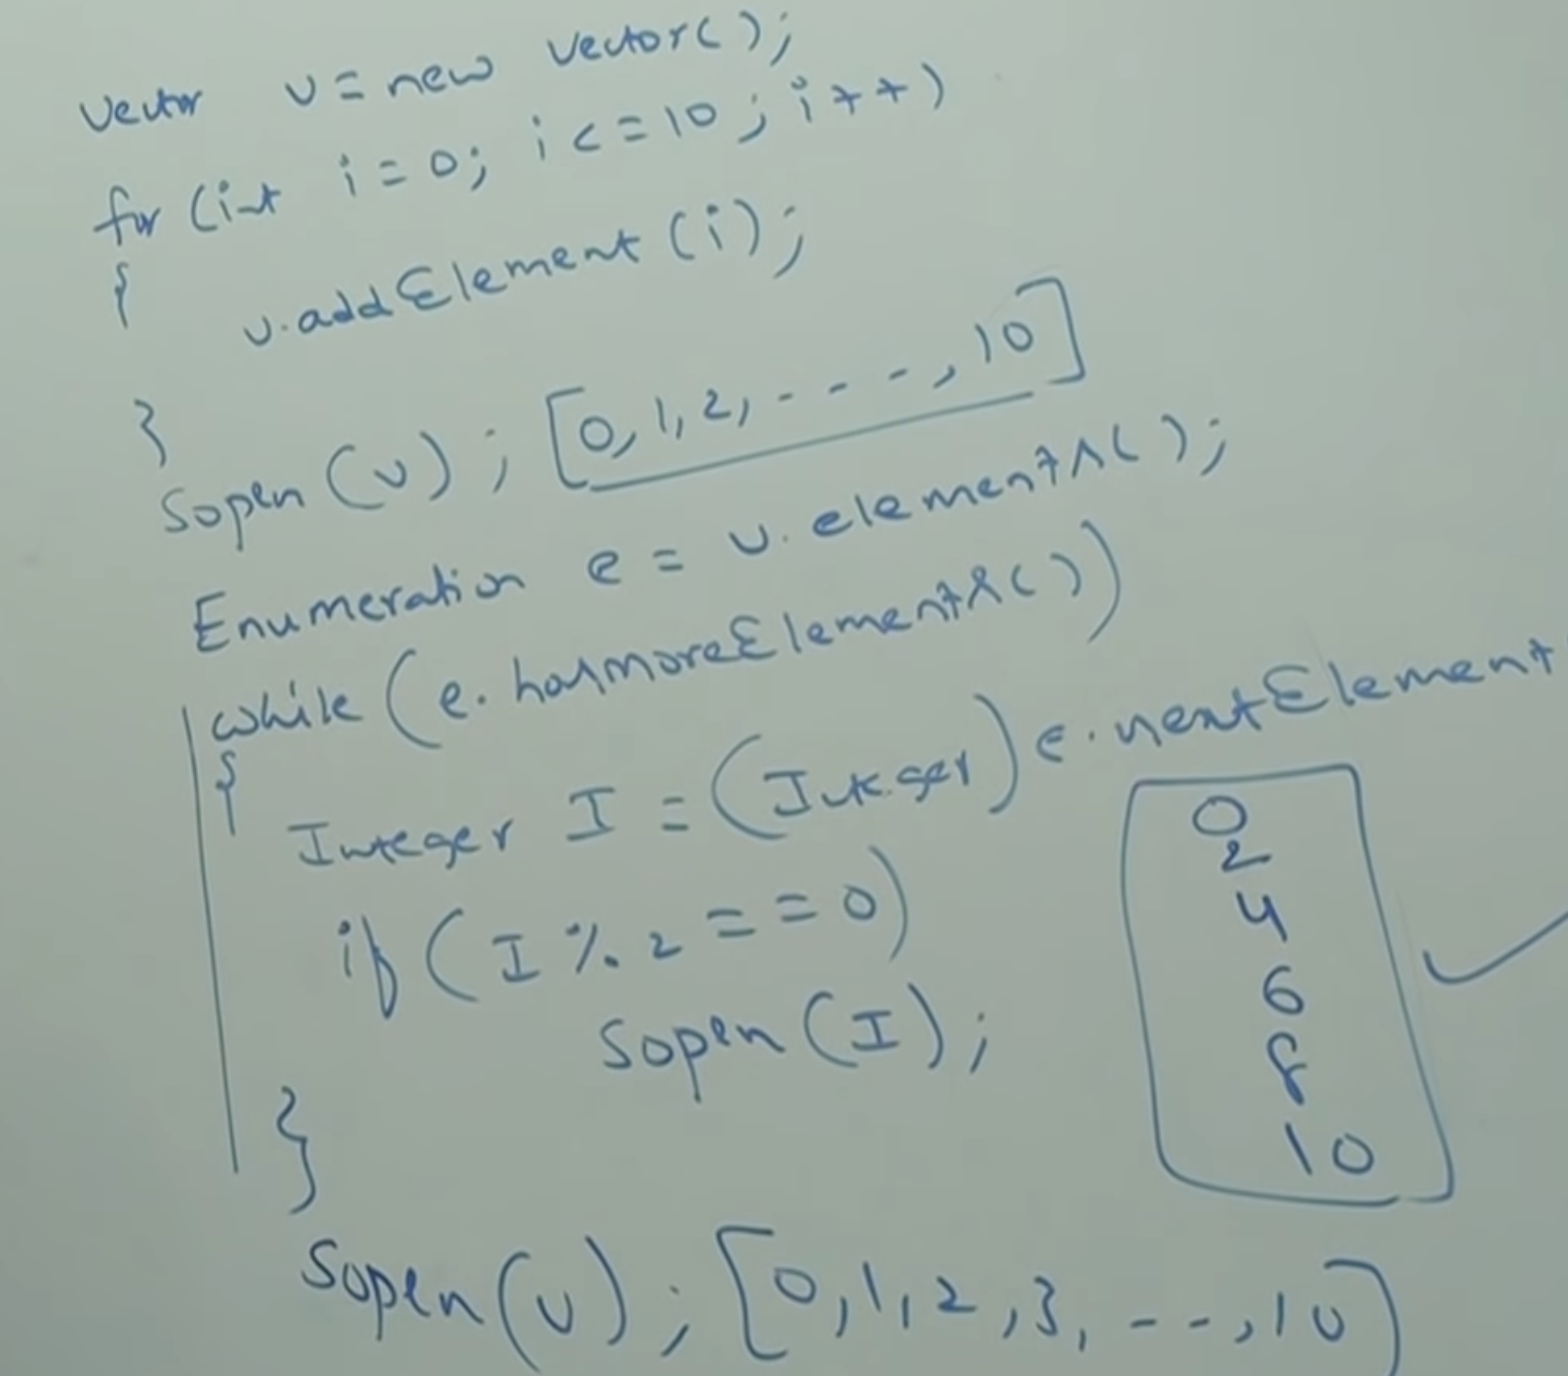 Vector v = new Vector();
for (int i = 0; i <= 10; i++)
{
v.addElement(i);
}
Sopln(v); [0, 1, 2, - - -, 10]
Enumeration e = v.elements();
while (e.hasmoreElements())
{
Integer I = (Integer) e.nextElement
if (I % 2 == 0)
Sopln(I);
0
2
4
6
8
10
}
Sopln(v); [0, 1, 2, 3, - - -, 10]